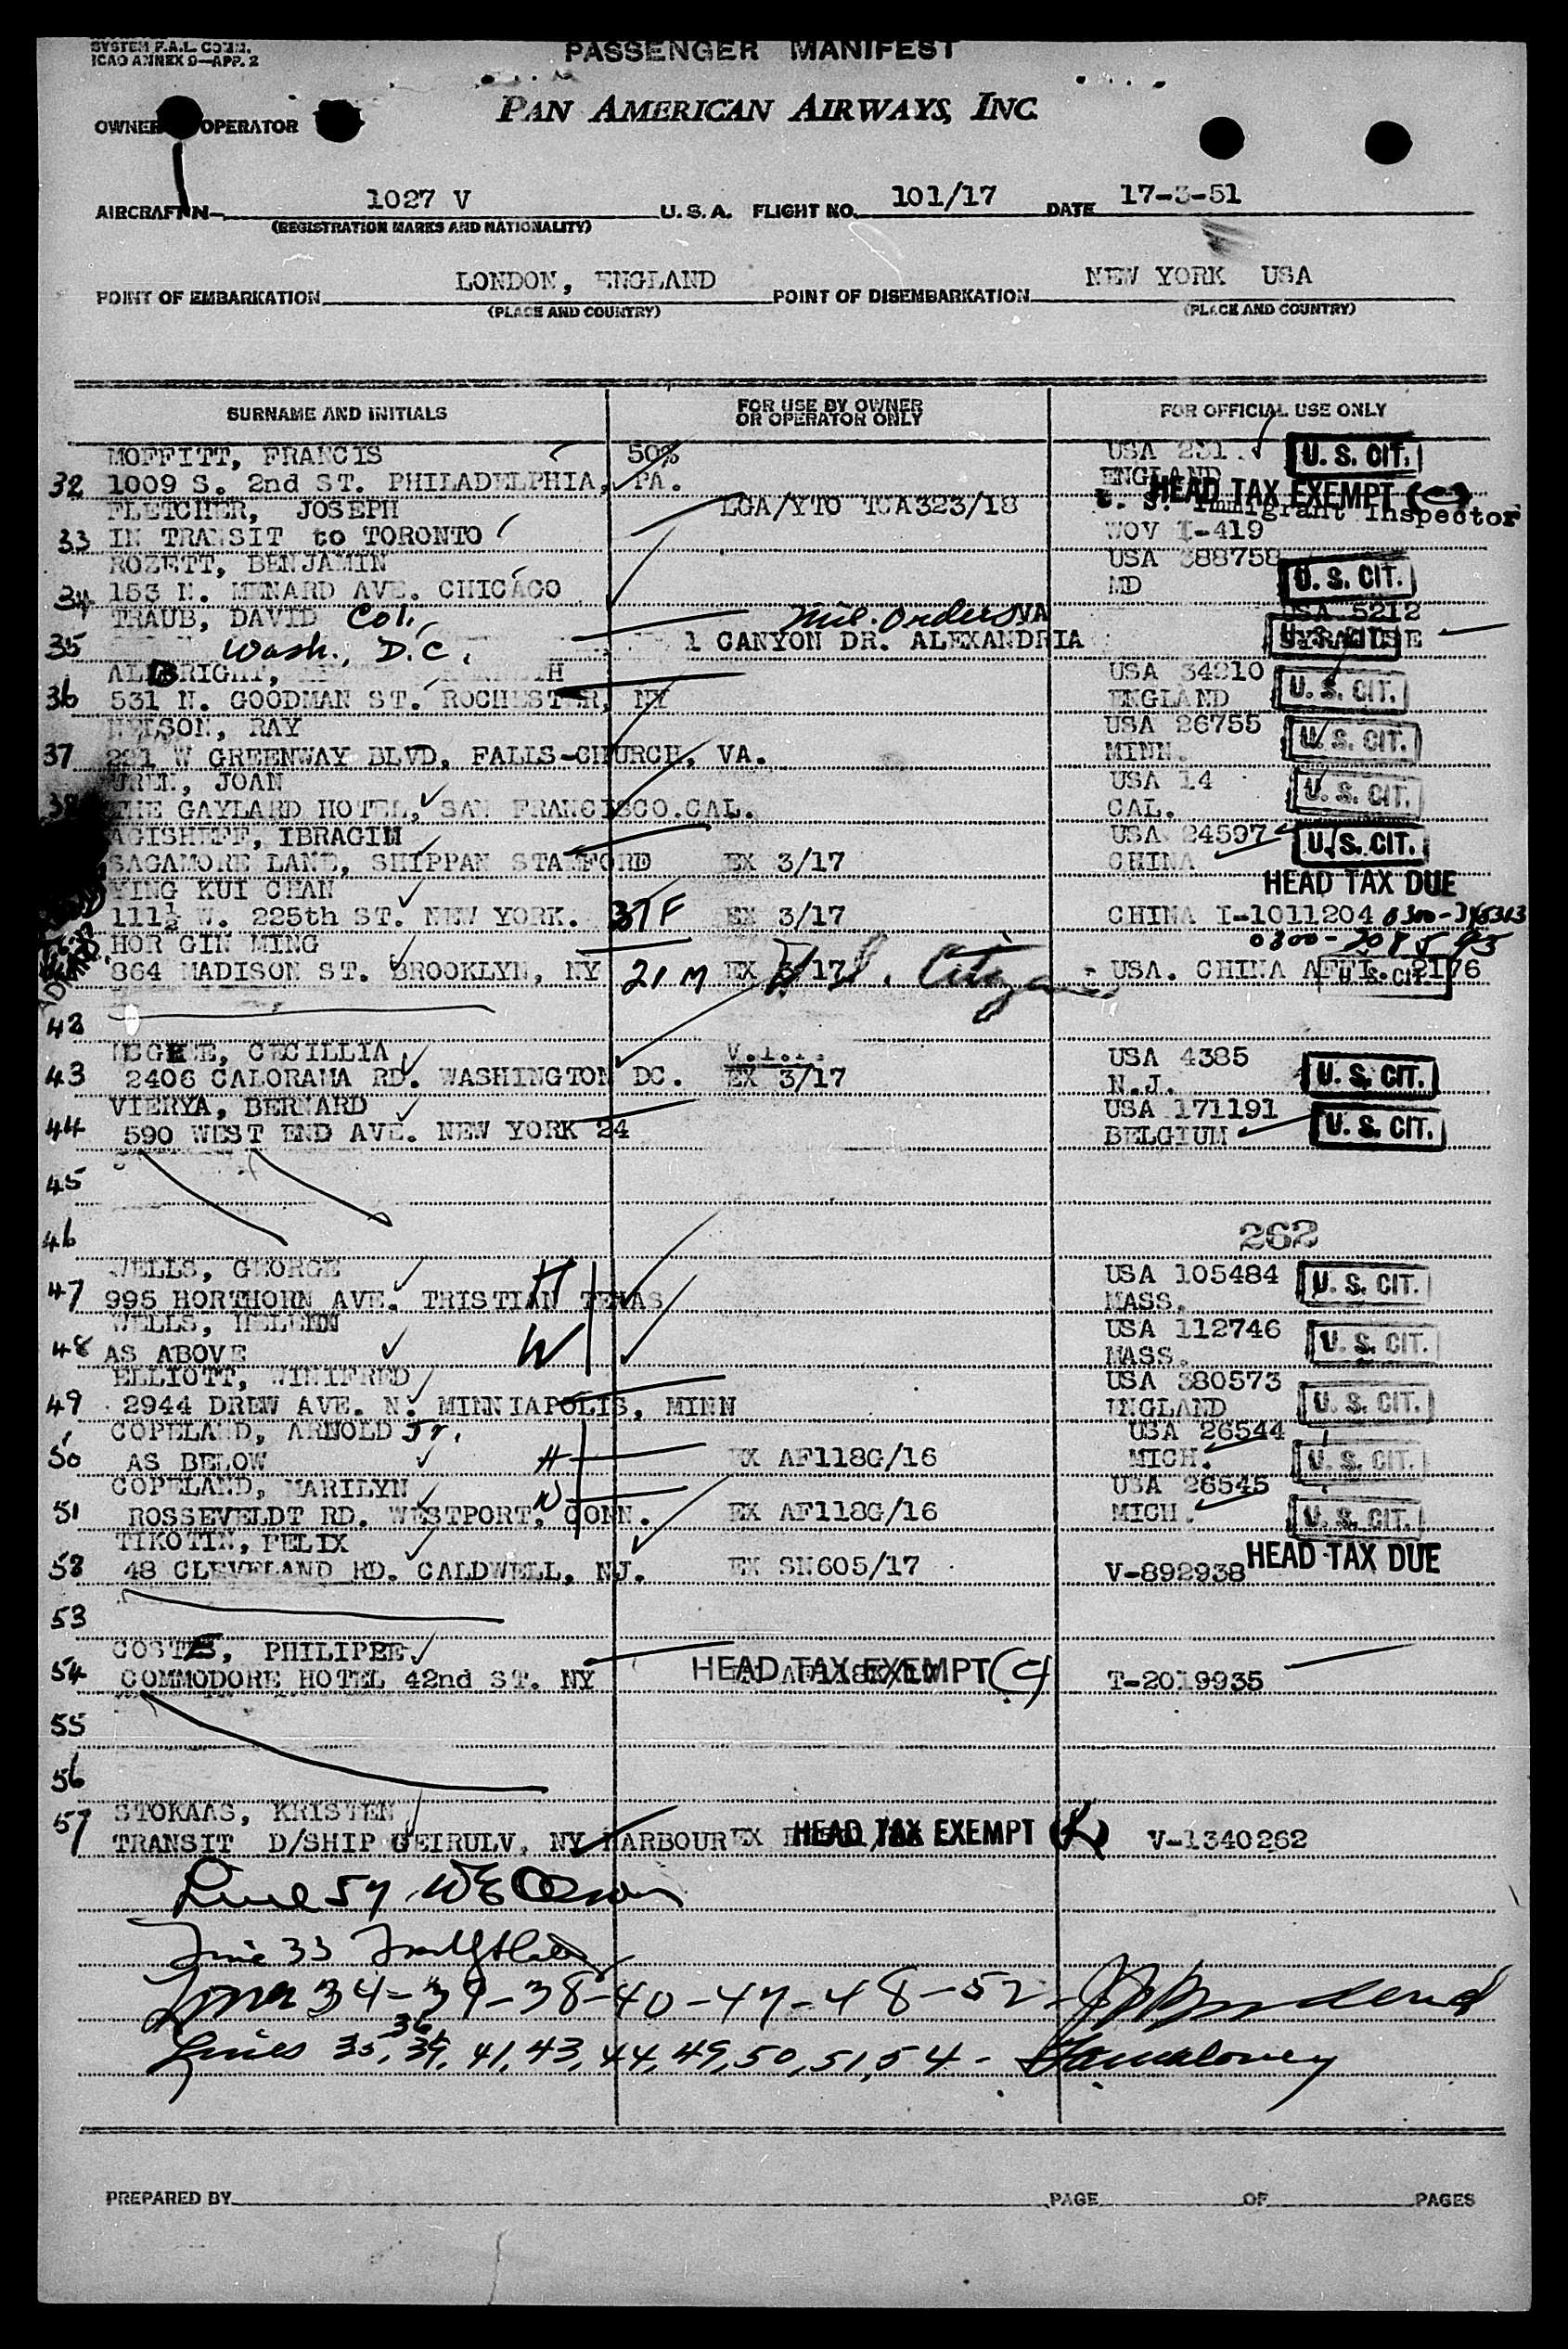 SYSTEM F.A.L. COMM.
ICAO ANNEX 9—APP. 2
PASSENGER MANIFEST
PAN AMERICAN AIRWAYS, INC.
OWNER OPERATOR
AIRCRAFT N 1027 V U.S.A. FLIGHT NO. 101/17 DATE 17-3-51
(REGISTRATION MARKS AND NATIONALITY)
POINT OF EMBARKATION LONDON, ENGLAND POINT OF DISEMBARKATION NEW YORK USA
(PLACE AND COUNTRY) (PLACE AND COUNTRY)
SURNAME AND INITIALS FOR USE BY OWNER OR OPERATOR ONLY FOR OFFICIAL USE ONLY
MOFFITT, FRANCIS 50% USA 231 U. S. CIT.
32 1009 S. 2nd ST. PHILADELPHIA, PA. ENGLAND
HEAD TAX EXEMPT
FLETCHER, JOSEPH LGA/YTO TCA323/18 U. S. Immigrant Inspector
33 IN TRANSIT to TORONTO I-419
ROZETT, BENJAMIN USA 388758
34 153 N. MENARD AVE. CHICAGO MD U. S. CIT.
TRAUB, DAVID Col. Mil. Orders VA USA 5212
35 Wash., D.C. 1 CANYON DR. ALEXANDRIA U. S. CIT.
ALBRIGHT, USA 34210
36 531 N. GOODMAN ST. ROCHESTER, NY ENGLAND U. S. CIT.
NELSON, RAY USA 26755
37 221 W GREENWAY BLVD, FALLS-CHURCH, VA. MINN. U. S. CIT.
UREN, JOAN USA 14
38 THE GAYLARD HOTEL, SAN FRANCISCO.CAL. CAL. U. S. CIT.
AGISHEFF, IBRAGIM USA 24597
SAGAMORE LANE, SHIPPAN STAMFORD EX 3/17 CHINA U. S. CIT.
YING KUI CHAN HEAD TAX DUE
111½ W. 225th ST. NEW YORK. 37 F EX 3/17 CHINA I-1011204
HOR GIN MING
864 MADISON ST. BROOKLYN, NY 21 M EX 3/17 U.S. Citizen USA. CHINA AFFI. 2176 U. S. CIT.
42
CECILLIA V.I.P. USA 4385
43 2406 CALORAMA RD. WASHINGTON DC. EX 3/17 N.J. U. S. CIT.
VIERYA, BERNARD USA 171191
44 590 WEST END AVE. NEW YORK 24 BELGIUM U. S. CIT.
45
46 262
WELLS, GEORGE USA 105484
47 995 HORTHORN AVE. TRISTIAN TEXAS H MASS. U. S. CIT.
WELLS, USA 112746
48 AS ABOVE W MASS. U. S. CIT.
ELLIOTT, WINIFRED USA 380573
49 2944 DREW AVE. N. MINNIAPOLIS, MINN ENGLAND U. S. CIT.
COPELAND, ARNOLD Jr. USA 26544
50 AS BELOW H EX AF118G/16 MICH. U. S. CIT.
COPELAND, MARILYN USA 26545
51 ROSSEVELDT RD. WESTPORT, CONN. W EX AF118G/16 MICH. U. S. CIT.
TIKOTIN, FELIX HEAD TAX DUE
52 48 CLEVELAND RD. CALDWELL, NJ. EX SN605/17 V-892938
53
COSTE, PHILIPPE
54 COMMODORE HOTEL 42nd ST. NY HEAD TAX EXEMPT (C) T-2019935
55
56
STOKAAS, KRISTEN
57 TRANSIT D/SHIP GEIRULV, NY HARBOUR EX HEAD TAX EXEMPT V-1340262
Line 57
Line 33
Lines 34-37-38-40-47-48-52-
Lines 35, 36, 39, 41, 43, 44, 49, 50, 51, 54 -
PREPARED BY PAGE OF PAGES